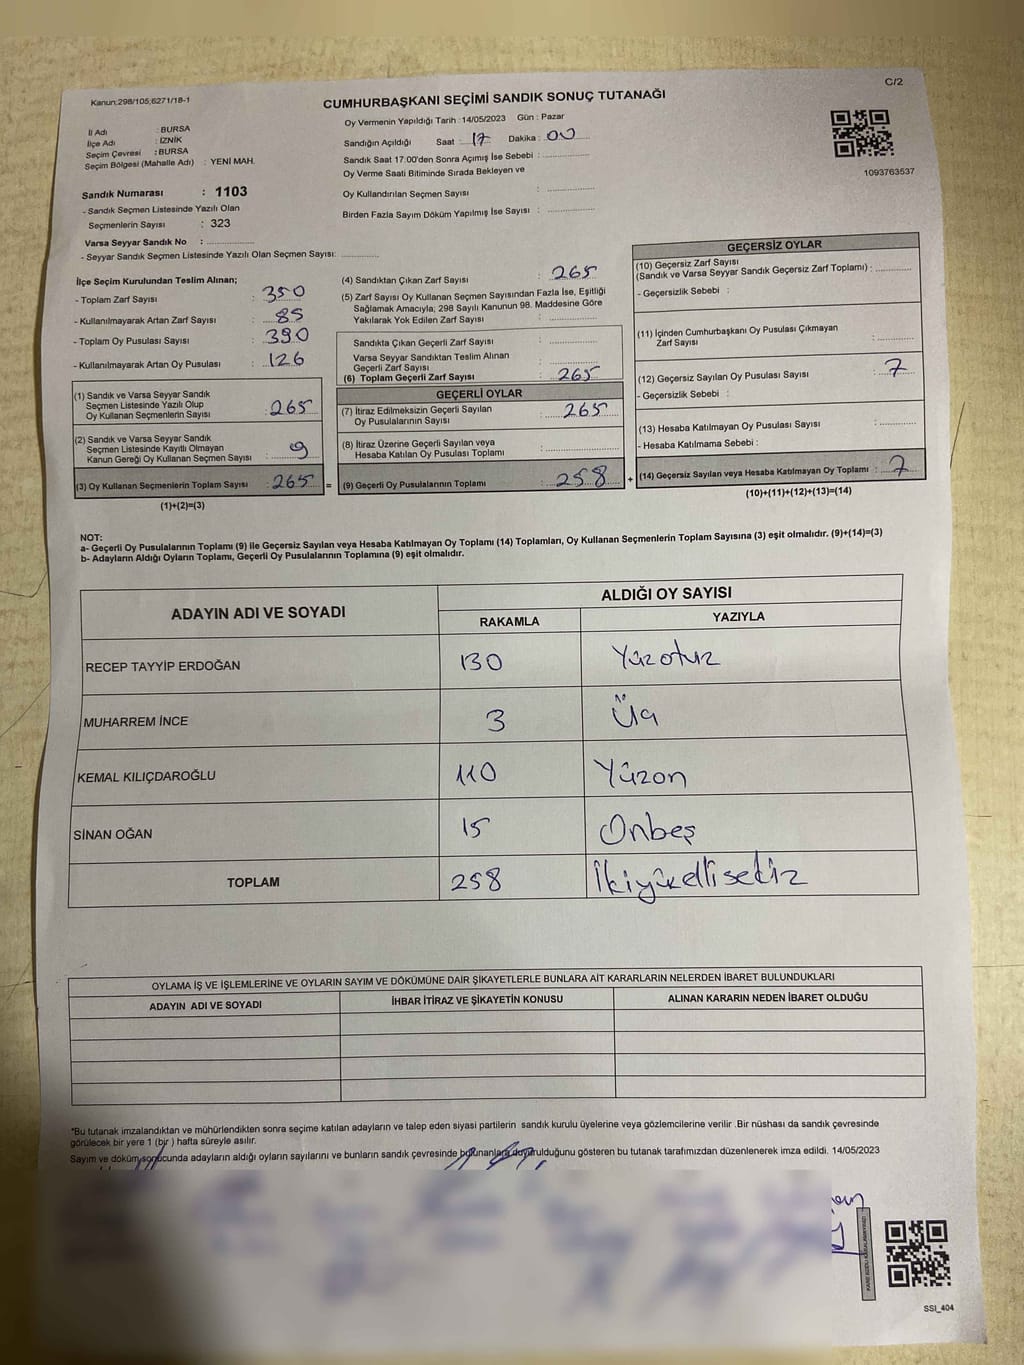 Kanun;298/105;6271/18-1
C/2
CUMHURBAŞKANI SEÇİMİ SANDIK SONUÇ TUTANAĞI
İl Adı : BURSA
İlçe Adı : İZNİK
Seçim Çevresi : BURSA
Seçim Bölgesi (Mahalle Adı) : YENİ MAH.
Oy Vermenin Yapıldığı Tarih : 14/05/2023 Gün : Pazar
Sandığın Açıldığı Saat : 17 Dakika : 00
Sandık Saat 17:00'den Sonra Açımış İse Sebebi :
Oy Verme Saati Bitiminde Sırada Bekleyen ve
Oy Kullandırılan Seçmen Sayısı :
Birden Fazla Sayım Döküm Yapılmış İse Sayısı :
1093763537
Sandık Numarası : 1103
- Sandık Seçmen Listesinde Yazılı Olan
Seçmenlerin Sayısı : 323
Varsa Seyyar Sandık No :
- Seyyar Sandık Seçmen Listesinde Yazılı Olan Seçmen Sayısı:
İlçe Seçim Kurulundan Teslim Alınan;
- Toplam Zarf Sayısı : 350
- Kullanılmayarak Artan Zarf Sayısı : 85
- Toplam Oy Pusulası Sayısı : 390
- Kullanılmayarak Artan Oy Pusulası : 126
(1) Sandık ve Varsa Seyyar Sandık
Seçmen Listesinde Yazılı Olup
Oy Kullanan Seçmenlerin Sayısı : 265
(2) Sandık ve Varsa Seyyar Sandık
Seçmen Listesinde Kayıtlı Olmayan
Kanun Gereği Oy Kullanan Seçmen Sayısı :
(3) Oy Kullanan Seçmenlerin Toplam Sayısı : 265 =
(1)+(2)=(3)
(4) Sandıktan Çıkan Zarf Sayısı : 265
(5) Zarf Sayısı Oy Kullanan Seçmen Sayısından Fazla İse, Eşitliği
Sağlamak Amacıyla; 298 Sayılı Kanunun 98. Maddesine Göre
Yakılarak Yok Edilen Zarf Sayısı :
Sandıkta Çıkan Geçerli Zarf Sayısı :
Varsa Seyyar Sandıktan Teslim Alınan
Geçerli Zarf Sayısı :
(6) Toplam Geçerli Zarf Sayısı : 265
GEÇERLİ OYLAR
(7) İtiraz Edilmeksizin Geçerli Sayılan
Oy Pusulalarının Sayısı : 265
(8) İtiraz Üzerine Geçerli Sayılan veya
Hesaba Katılan Oy Pusulası Toplamı :
(9) Geçerli Oy Pusulalarının Toplamı : 258 +
GEÇERSİZ OYLAR
(10) Geçersiz Zarf Sayısı
(Sandık ve Varsa Seyyar Sandık Geçersiz Zarf Toplamı) :
- Geçersizlik Sebebi :
(11) İçinden Cumhurbaşkanı Oy Pusulası Çıkmayan
Zarf Sayısı :
(12) Geçersiz Sayılan Oy Pusulası Sayısı : 7
- Geçersizlik Sebebi :
(13) Hesaba Katılmayan Oy Pusulası Sayısı :
- Hesaba Katılmama Sebebi :
(14) Geçersiz Sayılan veya Hesaba Katılmayan Oy Toplamı : 7
(10)+(11)+(12)+(13)=(14)
NOT:
a- Geçerli Oy Pusulalarının Toplamı (9) ile Geçersiz Sayılan veya Hesaba Katılmayan Oy Toplamı (14) Toplamları, Oy Kullanan Seçmenlerin Toplam Sayısına (3) eşit olmalıdır. (9)+(14)=(3)
b- Adayların Aldığı Oyların Toplamı, Geçerli Oy Pusulalarının Toplamına (9) eşit olmalıdır.
ADAYIN ADI VE SOYADI
ALDIĞI OY SAYISI
RAKAMLA YAZIYLA
RECEP TAYYİP ERDOĞAN 130 Yüzotuz
MUHARREM İNCE 3 Üç
KEMAL KILIÇDAROĞLU 110 Yüzon
SİNAN OĞAN 15 Onbeş
TOPLAM 258 İkiyüzellisekiz
OYLAMA İŞ VE İŞLEMLERİNE VE OYLARIN SAYIM VE DÖKÜMÜNE DAİR ŞİKAYETLERLE BUNLARA AİT KARARLARIN NELERDEN İBARET BULUNDUKLARI
ADAYIN ADI VE SOYADI İHBAR İTİRAZ VE ŞİKAYETİN KONUSU ALINAN KARARIN NEDEN İBARET OLDUĞU
*Bu tutanak imzalandıktan ve mühürlendikten sonra seçime katılan adayların ve talep eden siyasi partilerin sandık kurulu üyelerine veya gözlemcilerine verilir .Bir nüshası da sandık çevresinde
görülecek bir yere 1 (bir ) hafta süreyle asılır.
Sayım ve döküm sonucunda adayların aldığı oyların sayılarını ve bunların sandık çevresinde bulunanlara duyurulduğunu gösteren bu tutanak tarafımızdan düzenlenerek imza edildi. 14/05/2023
SSI_404